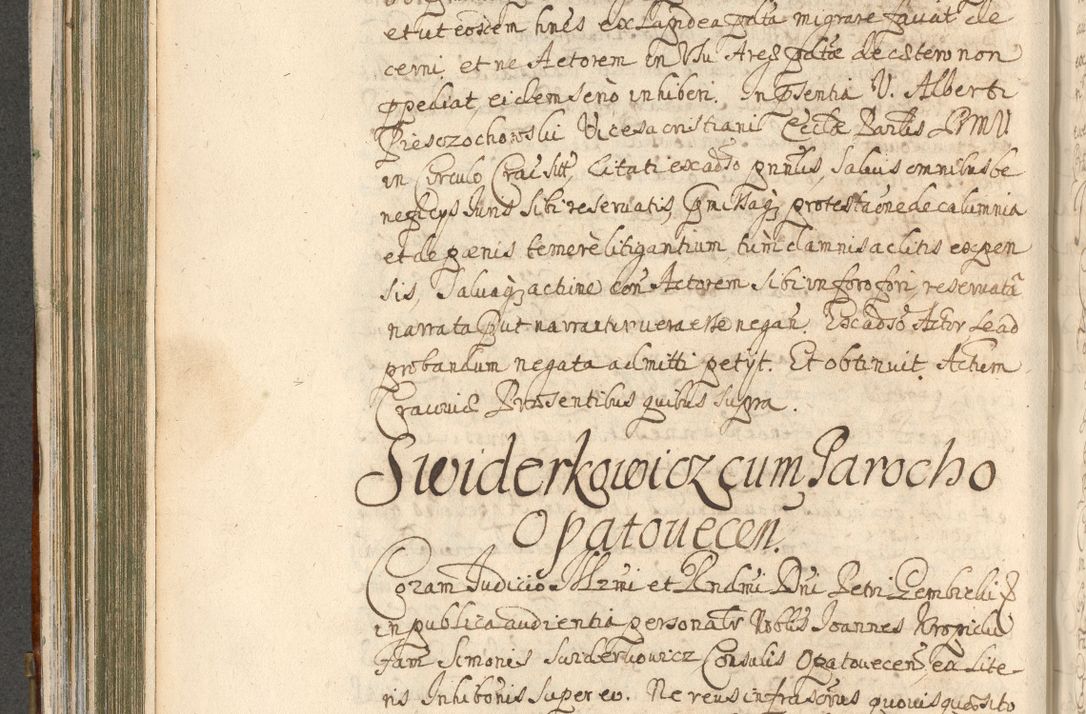 et ut eosdem fines exЛандea gata migrare faciat dece
cerni, et ne Actorem in Usu Areę gatæ de cætero non
ppediat, eidem serio inhiberi. In psentia V. Alberti
Piesczochowski Vicesacristiani Eccłæ Parlis PMV
in Circulo Crac sitt, Citati ex adso pnnlis, salvis omnibus be
neficys Juris sibi reservatis, pmissaq protestaone de calumnia
et de pœnis temerè litigantium, tùm damnis ac litis expen
sis, salvaq actione con Actorem sibi in foro fori, reservatã
narrata put narrantur vera esse negav. Ex adso Actor se ad
probandum negata admitti petyt. Et obtinuit. Actum
Cracoviæ Præsentibus quibus supra.
Swiderkowicz cum Parocho
Opatovecen.
Coram Judicio Illrmi et Rndmi Dni Petri Gembicki E
in publica audientia personalr Nobls Joannes Kropidlo
Fam Simonis Swiderkowicz Consulis Opatovecen, ex Lite-
ris Inhibonis super eo. Ne reus infrascrus quovis quæsito